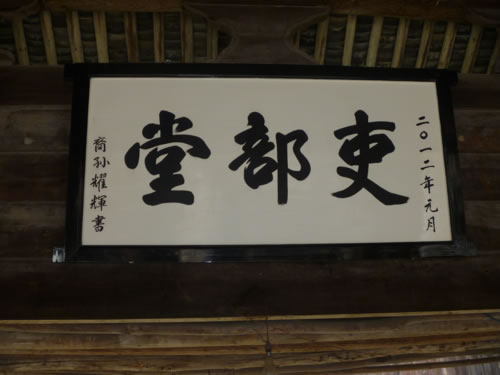 二〇一二年元月
吏部堂
裔孙耀輝書